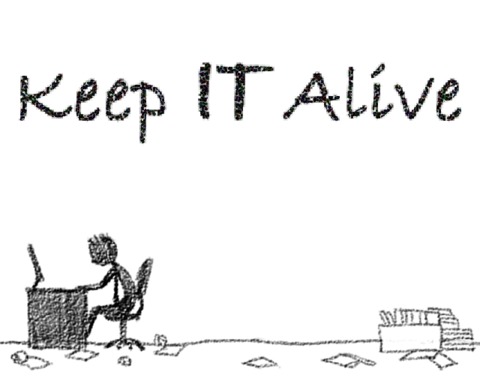 Keep IT Alive